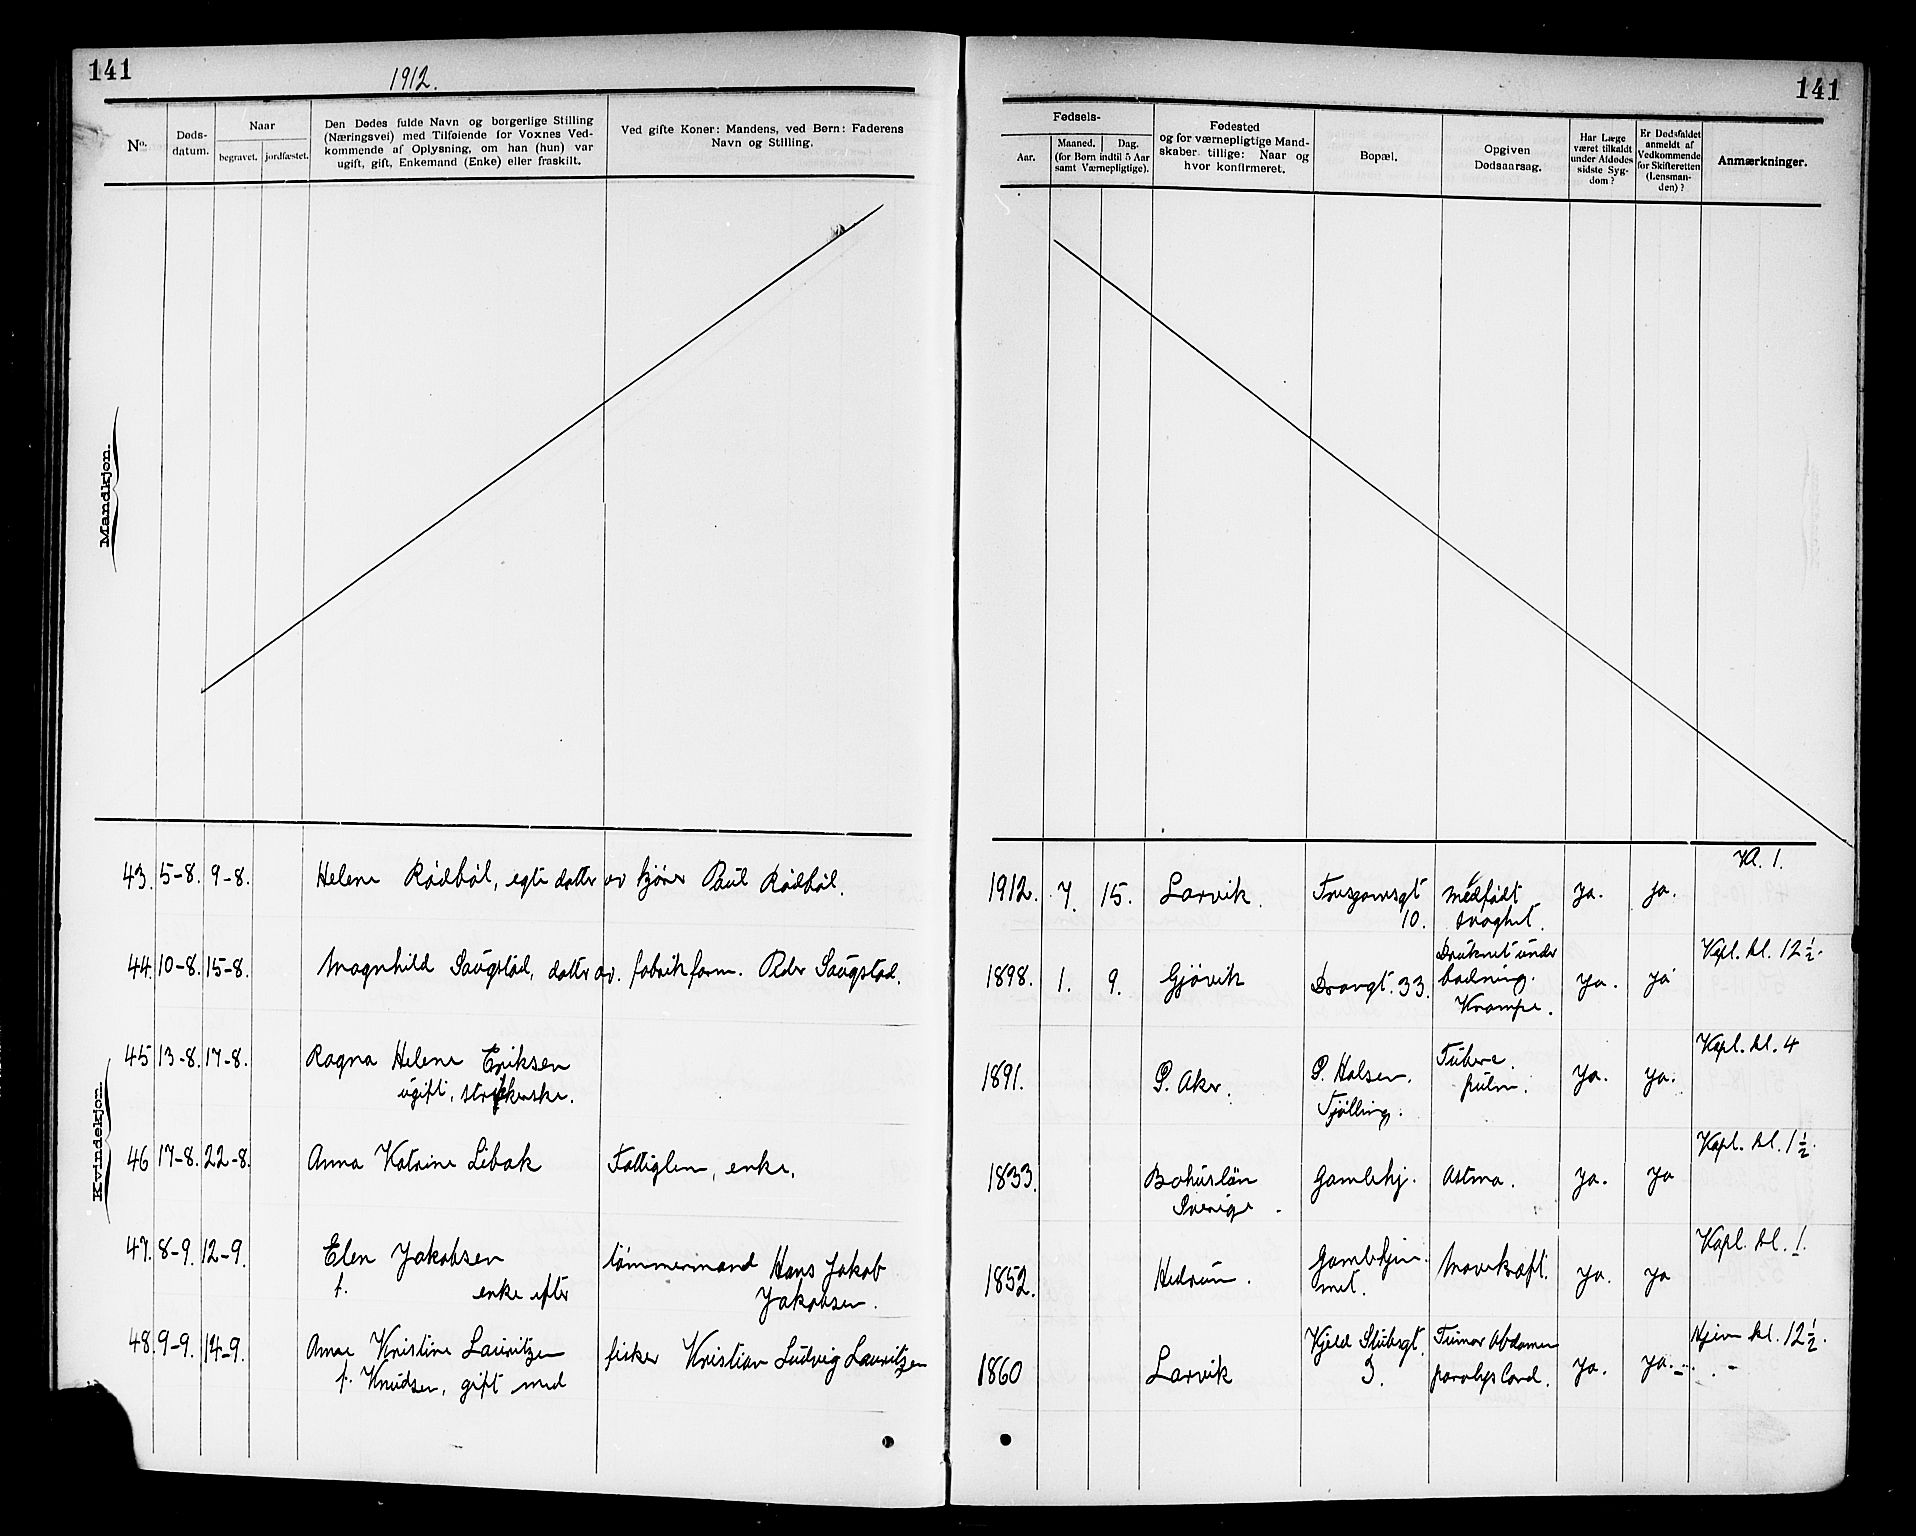 141
1912.
141
No.
Døds-
datum.
Naar
begravet.
jordfæstet.
Den Dødes fulde Navn og borgerlige Stilling
(Næringsvei) med Tilføiende for Voxnes Ved-
kommende af Oplysning, om han (hun) var
ugift, gift, Enkemand (Enke) eller fraskilt.
Ved gifte Koner: Mandens, ved Børn: Faderens
Navn og Stilling.
Fødsels-
Aar.
Maaned.
Dag.
(for Børn indtil 5 Aar
samt Værnepligtige).
Fødested
og for værnepligtige Mand-
skaber tillige: Naar og
hvor konfirmeret.
Bopæl.
Opgiven
Dødsaarsag.
Har Læge
været tilkaldt
under Afdødes
sidste Syg-
dom?
Er Dødsfaldet
anmeldt af
Vedkommende
for Skifteretten
(Lensman-
den)?
Anmærkninger.
Mandkjøn.
Kvindekjøn.
43. 5-8. 9-8. Helene Rødbøl, egte datter av kjører Paul Rødbøl. 1912. 7. 15. Larvik.
10.
medfødt
svaghet.
ja. ja.
Kl. 1.
44. 10-8. 15-8. Magnhild Saugstad, datter av. fabrikform. Peder Saugstad. 1898. 1. 9. Gjøvik Drangt. 33.
Druknet under
badning.
Krampe.
ja. ja
Kapl. kl. 12 1/2.
45 13-8. 17-8. Ragna Helene Eriksen
ugift, strykerske.
1891. Ø. Aker. Ø. Halsen.
Tjølling.
Tuberc.
pulm.
ja. ja.
Kapl. kl. 4
46 17-8. 22-8. Anna Katrine Libak Fattiglem, enke. 1833.
Bohuslän
Sverige.
Gamlehj. Astma. ja. ja
Kapl. kl. 1 1/2.
47. 8-9. 12-9. Elen Jakobsen
f. enke efter
tømmermand Hans Jakob
Jakobsen.
1852. Hedrum.
Gamlehjem-
met.
Mavekræft. ja. ja
Kapl. kl. 1.
48. 9-9. 14-9. Anne Kristine Lauritzen
f. Knudsen, gift med
fisker Kristian Ludvig Lauritzen
1860 Larvik
Kjeld Stubsgt.
3.
Tumor Abdomen
paralys Cord.
ja. ja.
Hjem kl. 12 1/2.